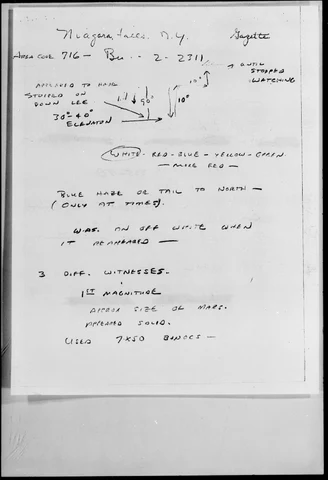 Niagara Falls, N.Y. Gazette
AREA CODE 716 - Bu 2-2311
UNTIL
STOPPED
WATCHING
APPEARED TO HAVE
STUDDED ON
DOWN LEE
90° 10°
30°-40°
ELEVATION
WHITE - RED - BLUE - YELLOW - GREEN
- MORE RED -
BLUE HAZE OR TAIL TO NORTH -
(ONLY AT TIMES).
WAS AN OFF WHITE WHEN
IT REAPPEARED -
3 DIFF. WITNESSES.
1ST MAGNITUDE
APPROX SIZE OF MARS.
APPEARED SOLID.
USED 7X50 BINOCS -